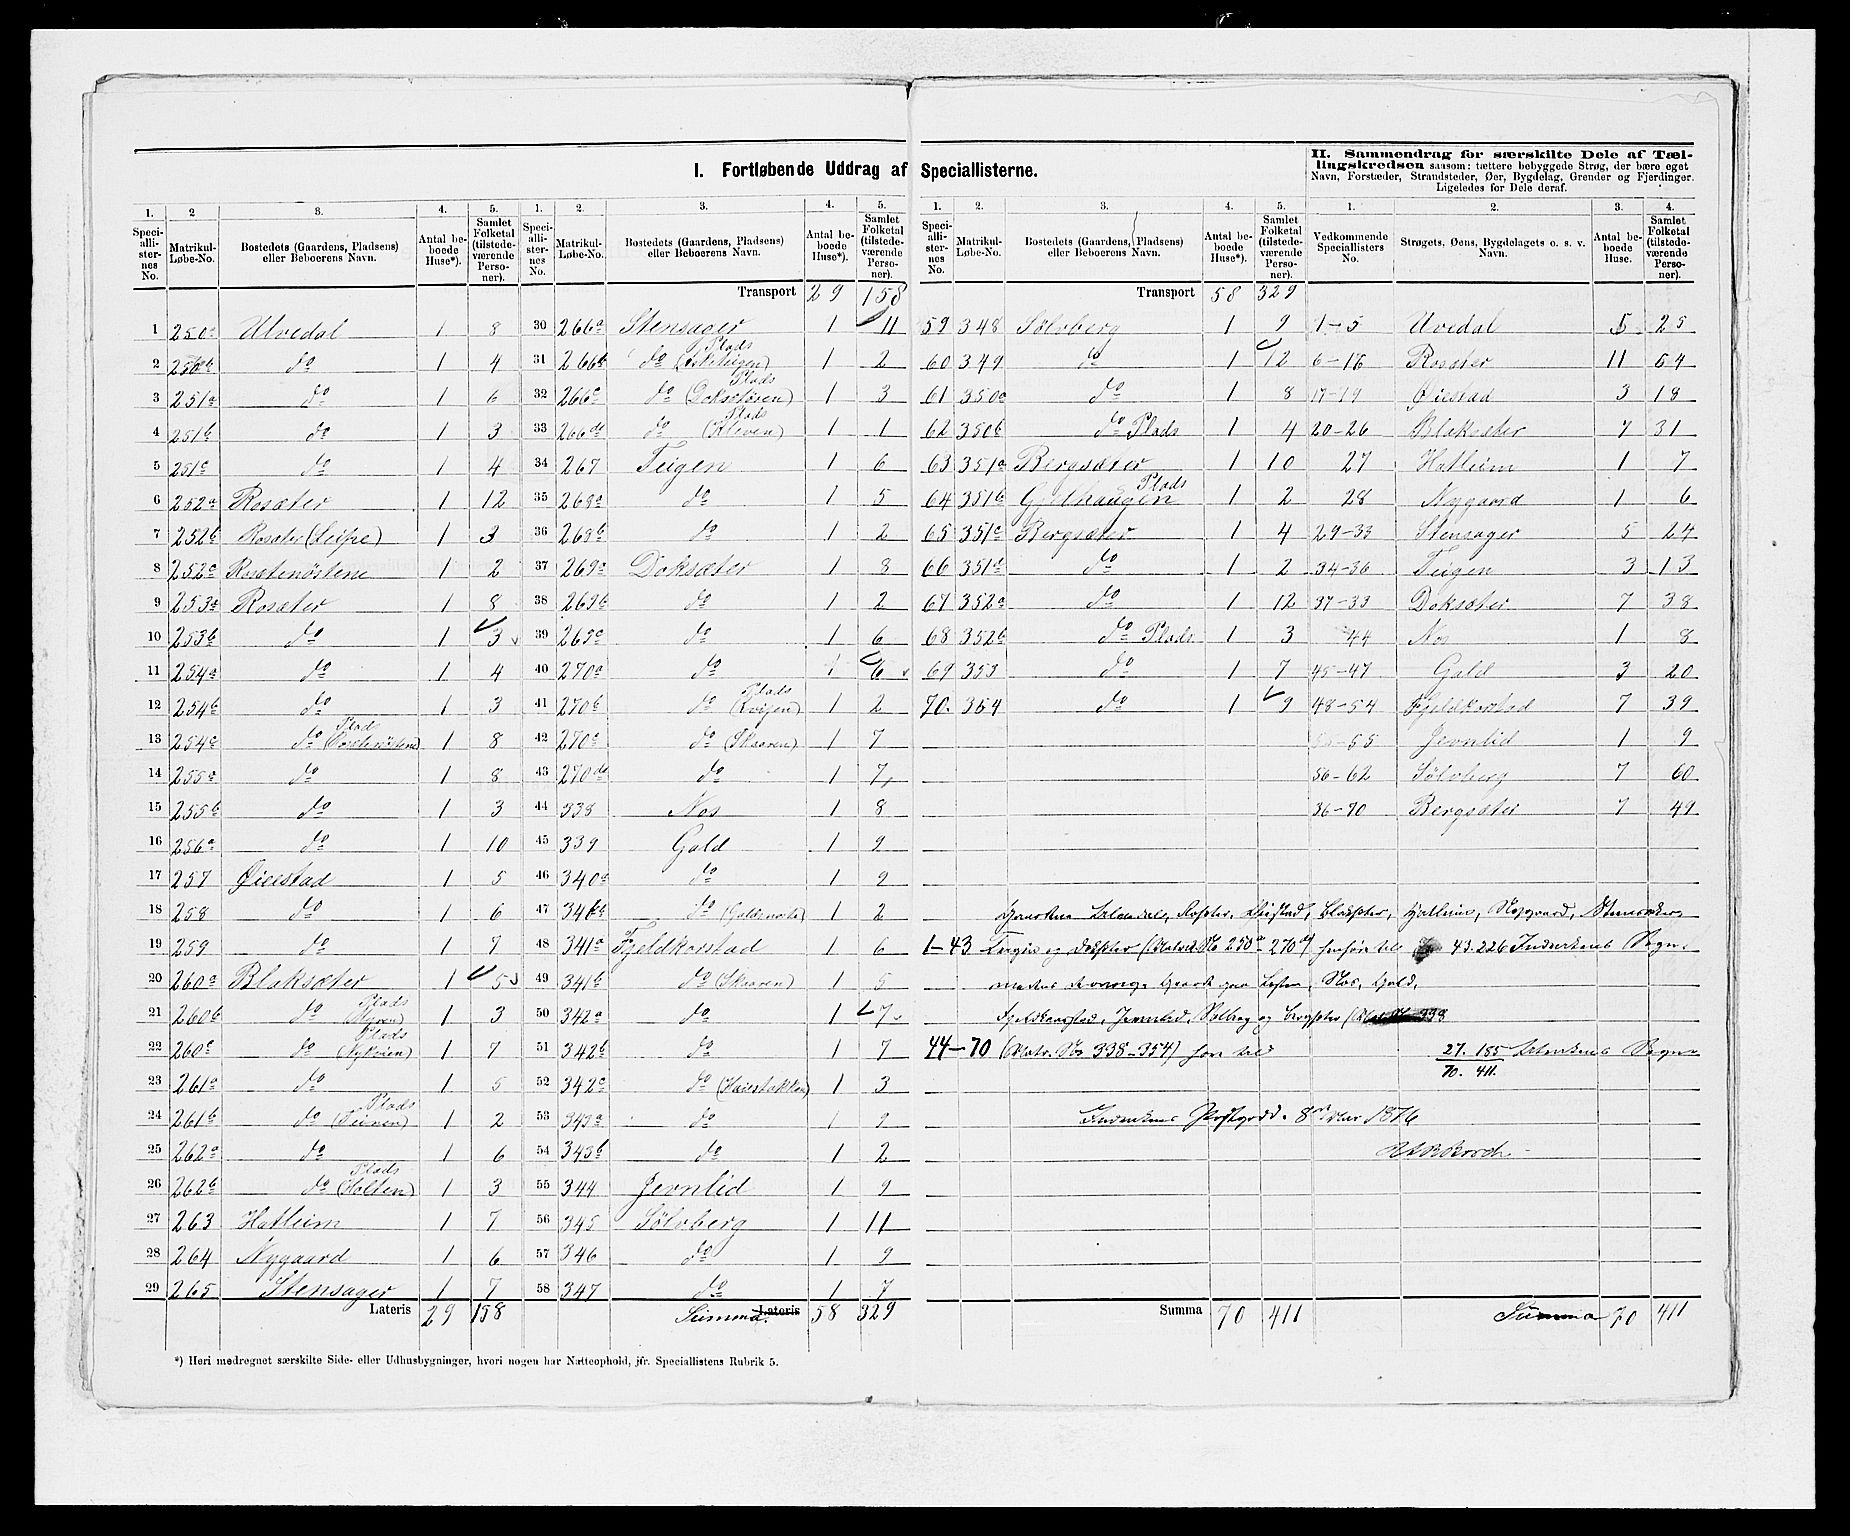 I. Fortløbende Uddrag af Speciallisterne.
II. Sammendrag for særskilte Dele af Tæl-
lingskredsen saasom: tættere bebyggede Strøg, der bære eget
Navn, Forstæder, Strandsteder, Øer, Bygdelag, Grender og Fjerdinger.
Ligeledes for Dele deraf.
1. 2 3. 4. 5.
Speciallisternes No. Matrikul-Løbe-No. Bostedets (Gaardens, Pladsens) eller Beboerens Navn. Antal beboede Huse*). Samlet Folketal (tilstedeværende Personer).
1 250a Uvedal 1 8
2 250b do 1 4
3 251a do 1 6
4 251b do 1 3
5 251c do 1 4
6 252a Rosæter 1 12
7 252b Rosæter (Leipe) 1 3
8 252c Rosætenöstene 1 2
9 253a Rosæter 1 8
10 253b do 1 3
11 254a do 1 4
12 254b do 1 3
13 254c do Plads (Rosætenöstene) 1 8
14 255a do 1 8
15 255b do 1 3
16 256a do 1 10
17 257 Øiestad 1 5
18 258 do 1 6
19 259 do 1 7
20 260a Blaksæter 1 5
21 260b do Plads (Myren) 1 3
22 260c do Plads (Nykvien) 1 7
23 261a do 1 5
24 261b do Plads 1 2
25 262a do 1 6
26 262b do Plads (Holten) 1 3
27 263 Hatleim 1 7
28 264 Nygaard 1 6
29 265 Stensager 1 7
Lateris 29 158
1. 2. 3. 4. 5.
Speciallisternes No. Matrikul-Løbe-No. Bostedets (Gaardens, Pladsens) eller Beboerens Navn. Antal beboede Huse*). Samlet Folketal (tilstedeværende Personer).
Transport 29 158
30 266a Stensager 1 11
31 266b do Plads 1 2
32 266c do Plads (Doksetøren) 1 3
33 266d do Plads (Kleven) 1 1
34 267 Teigen 1 6
35 268a do 1 5
36 268b do 1 2
37 269a Doksæter 1 8
38 269b do 1 2
39 269c do 1 6
40 270a do 1 6
41 270b do Plads (Kvien) 1 2
42 270c do (Skaaren) 1 7
43 270d do 1 7
44 338 Nos 1 8
45 339 Gald 1 9
46 340a do 1 9
47 340b do 1 2
48 341a Fjeldkorstad 1 6
49 341b do (Skaaren) 1 5
50 342a do 1 7
51 342b do 1 7
52 342c do 1 3
53 343a do 1 9
54 343b do 1 2
55 344 Jevnlid 1 9
56 345 Sölvberg 1 11
57 346 do 1 9
58 347 do 1 7
Summa. Lateris 58 329
1. 2. 3. 4. 5.
Speciallisternes No. Matrikul-Løbe-No. Bostedets (Gaardens, Pladsens) eller Beboerens Navn. Antal beboede Huse*). Samlet Folketal (tilstedeværende Personer).
Transport 58 329
59 348 Sölvberg 1 9
60 349 do 1 12
61 350a do 1 8
62 350b do Plads 1 4
63 351a Bergsæter 1 10
64 351b Gjelhaugen Plads 1 2
65 351c Bergsæter 1 4
66 351d do 1 2
67 352a do 1 12
68 352b do Plads 1 3
69 353 do 1 7
70. 354 do 1 9
1. 2. 3. 4.
Vedkommende Speciallisters No. Strøgets, Øens, Bygdelagets o. s. v. Navn. Antal beboede Huse. Samlet Folketal (tilstedeværende Personer).
1-5 Uvedal 5 25
6-16 Rosæter 11 64
17-19 Øiestad 3 18
20-26 Blaksæter 7 31
27 Hatleim 1 7
28 Nygaard 1 6
29-33 Stensager 5 24
34-36 Teigen 3 13
Doksæter 7 38
44 Nos 1 8
45-47 Gald 3 20
48-54 Fjeldkorstad 7 39
55 Jevnlid 1 9
56-62 Sölvberg 7 60
Bergsæter 7 49
Gaardene Uvedal, Rosæter, Øiestad, Blaksæter, Hatleim, Nygaard, Stensager,
1-43 Teigen og Doksæter (Matrik. No 250a - 270d) henføre til 43. 226 Indvikens Sogn,
medens øvrige Gaarde Nos, Gald,
Fjeldkorstad, Jevnlid, Sølvberg og Bergsæter
44-70 (Matr. No 338-354) høre til 27. 185 Sogn
70. 411.
Indvikens Præstegjeld 8 1876
Summa 70 411
Summa 70 411
*) Heri medregnet særskilte Side- eller Udhusbygninger, hvori nogen har Natteophold, jfr. Speciallistens Rubrik 5.